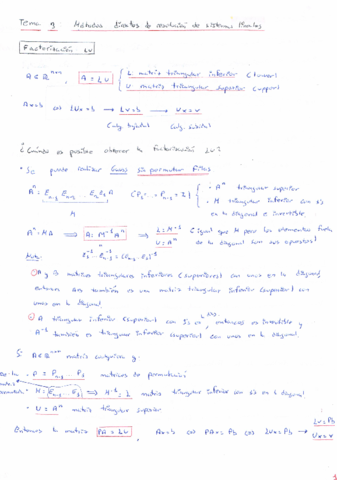 Tema 9 Métodos directos de resolución de sistemas lineales
Factorización LU
A ∈ ℝⁿˣⁿ, A = LU { L matriz triangular inferior (lower)
U matriz triangular superior (upper)
Ax=b ⇔ LUx=b → Lv=b → Ux=v
¿Cuándo es posible obtener la factorización LU?
Se puede realizar Gauss sin permutar filas
Aⁿ = Eₙ₋₁ Eₙ₋₂ ... E₂ E₁ A (P₁ = ... = Pₙ₋₁ = I) { · Aⁿ triangular superior
· M triangular inferior con 1s
en la diagonal e invertible.
M
Aⁿ = MA ⇒ A = M⁻¹Aⁿ ⇒ L = M⁻¹ (igual que M pero los elementos fuera
U = Aⁿ de la diagonal son sus opuestos)
Nota:
① A y B matrices triangulares inferiores (superiores) con unos en la diagonal,
entonces A·B también es una matriz triangular inferior (superior) con
unos en la diagonal.
② A triangular inferior (superior) con 1s en diag. entonces es invertible y
A⁻¹ también es triangular inferior (superior) con unos en la diagonal.
Si A ∈ ℝⁿˣⁿ matriz cualquiera y:
P = Pₙ₋₁ ... P₁ matrices de permutación
M = Eₙ₋₁ ... E₁ ⇒ M⁻¹ = L matriz triangular inferior con 1s en la diagonal.
U = Aⁿ matriz triangular superior
Entonces la matriz PA = LU, Ax=b ⇔ PAx = Pb ⇔ LUx = Pb → Lv = Pb
Ux = v
1